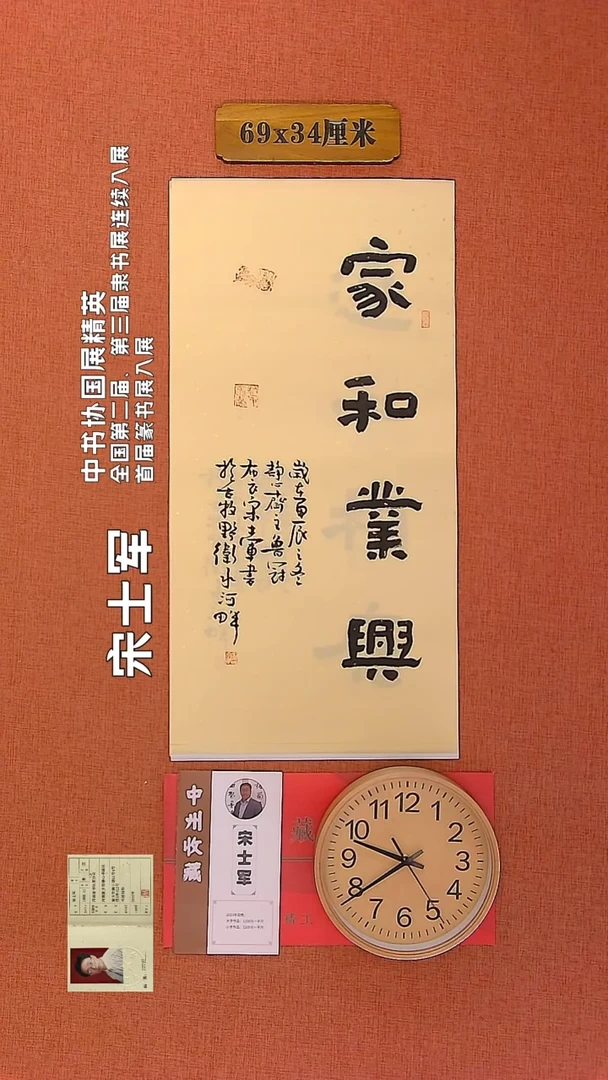 69x34厘米
家和業興
歲在甲辰之冬
静心齋主魯冠
布衣宋士軍書
於古牧野衛水河畔
中书协国展精英
全国第二届、第三届隶书展连续入展
首届篆书展入展
宋士军
中州收藏
宋士军
藏
12
1
2
3
4
5
6
7
8
9
10
11